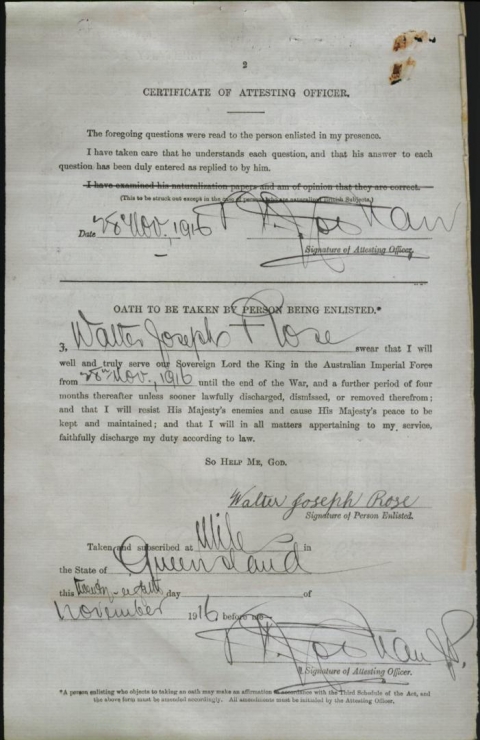 2
CERTIFICATE OF ATTESTING OFFICER.
The foregoing questions were read to the person enlisted in my presence.
I have taken care that he understands each question, and that his answer to each
question has been duly entered as replied to by him.
I have examined his naturalization papers and am of opinion that they are correct.
(This to be struck out except in the case of persons who are naturalized British Subjects.)
Date 28th Nov., 1916
Signature of Attesting Officer.
OATH TO BE TAKEN BY PERSON BEING ENLISTED.*
3, Walter Joseph Rose swear that I will
well and truly serve our Sovereign Lord the King in the Australian Imperial Force
from 28th Nov., 1916 until the end of the War, and a further period of four
months thereafter unless sooner lawfully discharged, dismissed, or removed therefrom;
and that I will resist His Majesty's enemies and cause His Majesty's peace to be
kept and maintained; and that I will in all matters appertaining to my service,
faithfully discharge my duty according to law.
SO HELP ME, GOD.
Walter Joseph Rose
Signature of Person Enlisted.
Taken and subscribed at in
the State of Queensland
this twenty-eighth day of
November 1916, before me—
J.P.
Signature of Attesting Officer.
*A person enlisting who objects to taking an oath may make an affirmation in accordance with the Third Schedule of the Act, and
the above form must be amended accordingly. All amendments must be initialed by the Attesting Officer.